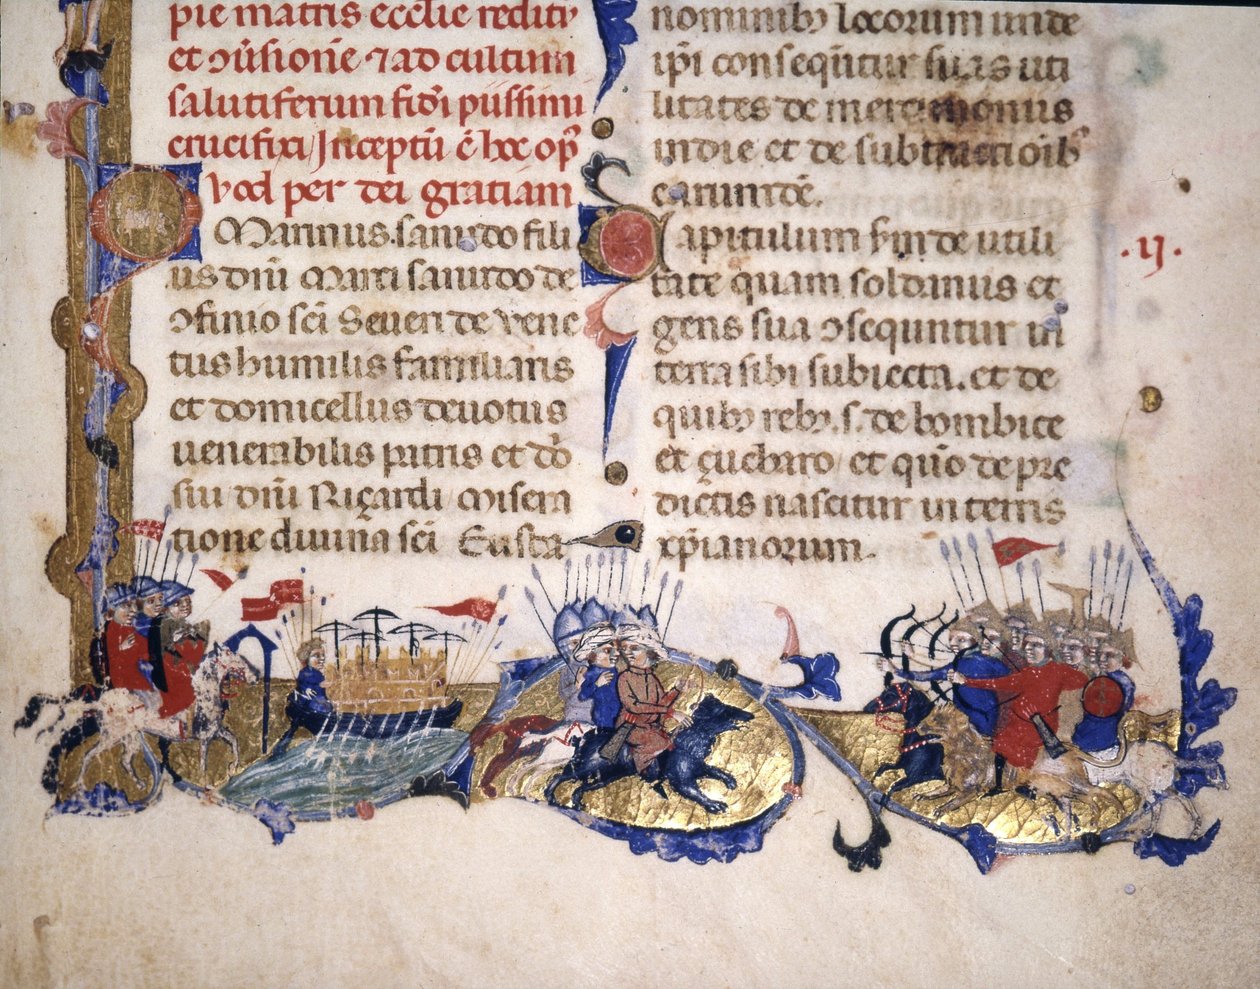 pie matris eccl̄ie reditū
et ↄ̄u̓sionē ⁊ ad cultum
salutiferum fid̓i piissimi
crucifixi / Inceptū ē hoc op⁹
Quod per dei gratiam
Marinus. sanudo fili
us dn̄i Marci sanudo de
ↄfinio sc̄i Seueri de Uene
tus humilis familiaris
et domicellus deuotus
uenerabilis patris et dō
sui / dn̄i Ricardi / misera
tione diuina sc̄i Eusta
nominibȝ locorum unde
ip̄i conseqūtur suas uti
litates de mercimonius
indie et de subtractioībȝ
earundē.
Capitulum scd̄m de utili
tate quam soldanus et
gens sua ↄsequuntur in
terra sibi subiecta. et de
quibȝ rebȝ. s. de bombice
et çucharo / et quō de pre
dictis nascatur in terris
xp̄ianorum.
.ij.